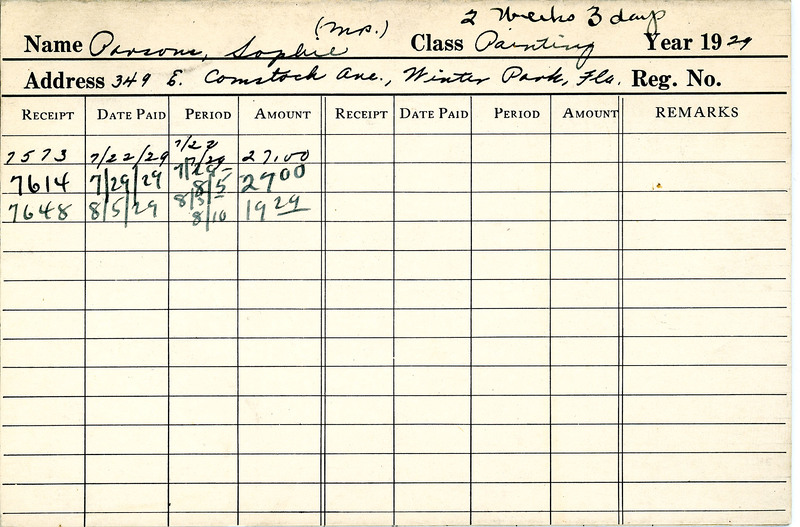 2 Weeks 3 days
Name Parsons, Sophie (Mrs.) Class Painting Year 1929
Address 349 E. Comstock Ave., Winter Park, Fla. Reg. No.
RECEIPT DATE PAID PERIOD AMOUNT RECEIPT DATE PAID PERIOD AMOUNT REMARKS
7573 7/22/29 7/22 7/29 27.00
7614 7/29/29 7/29- 8/5 27 00
7648 8/5/29 8/5 8/10 19 29